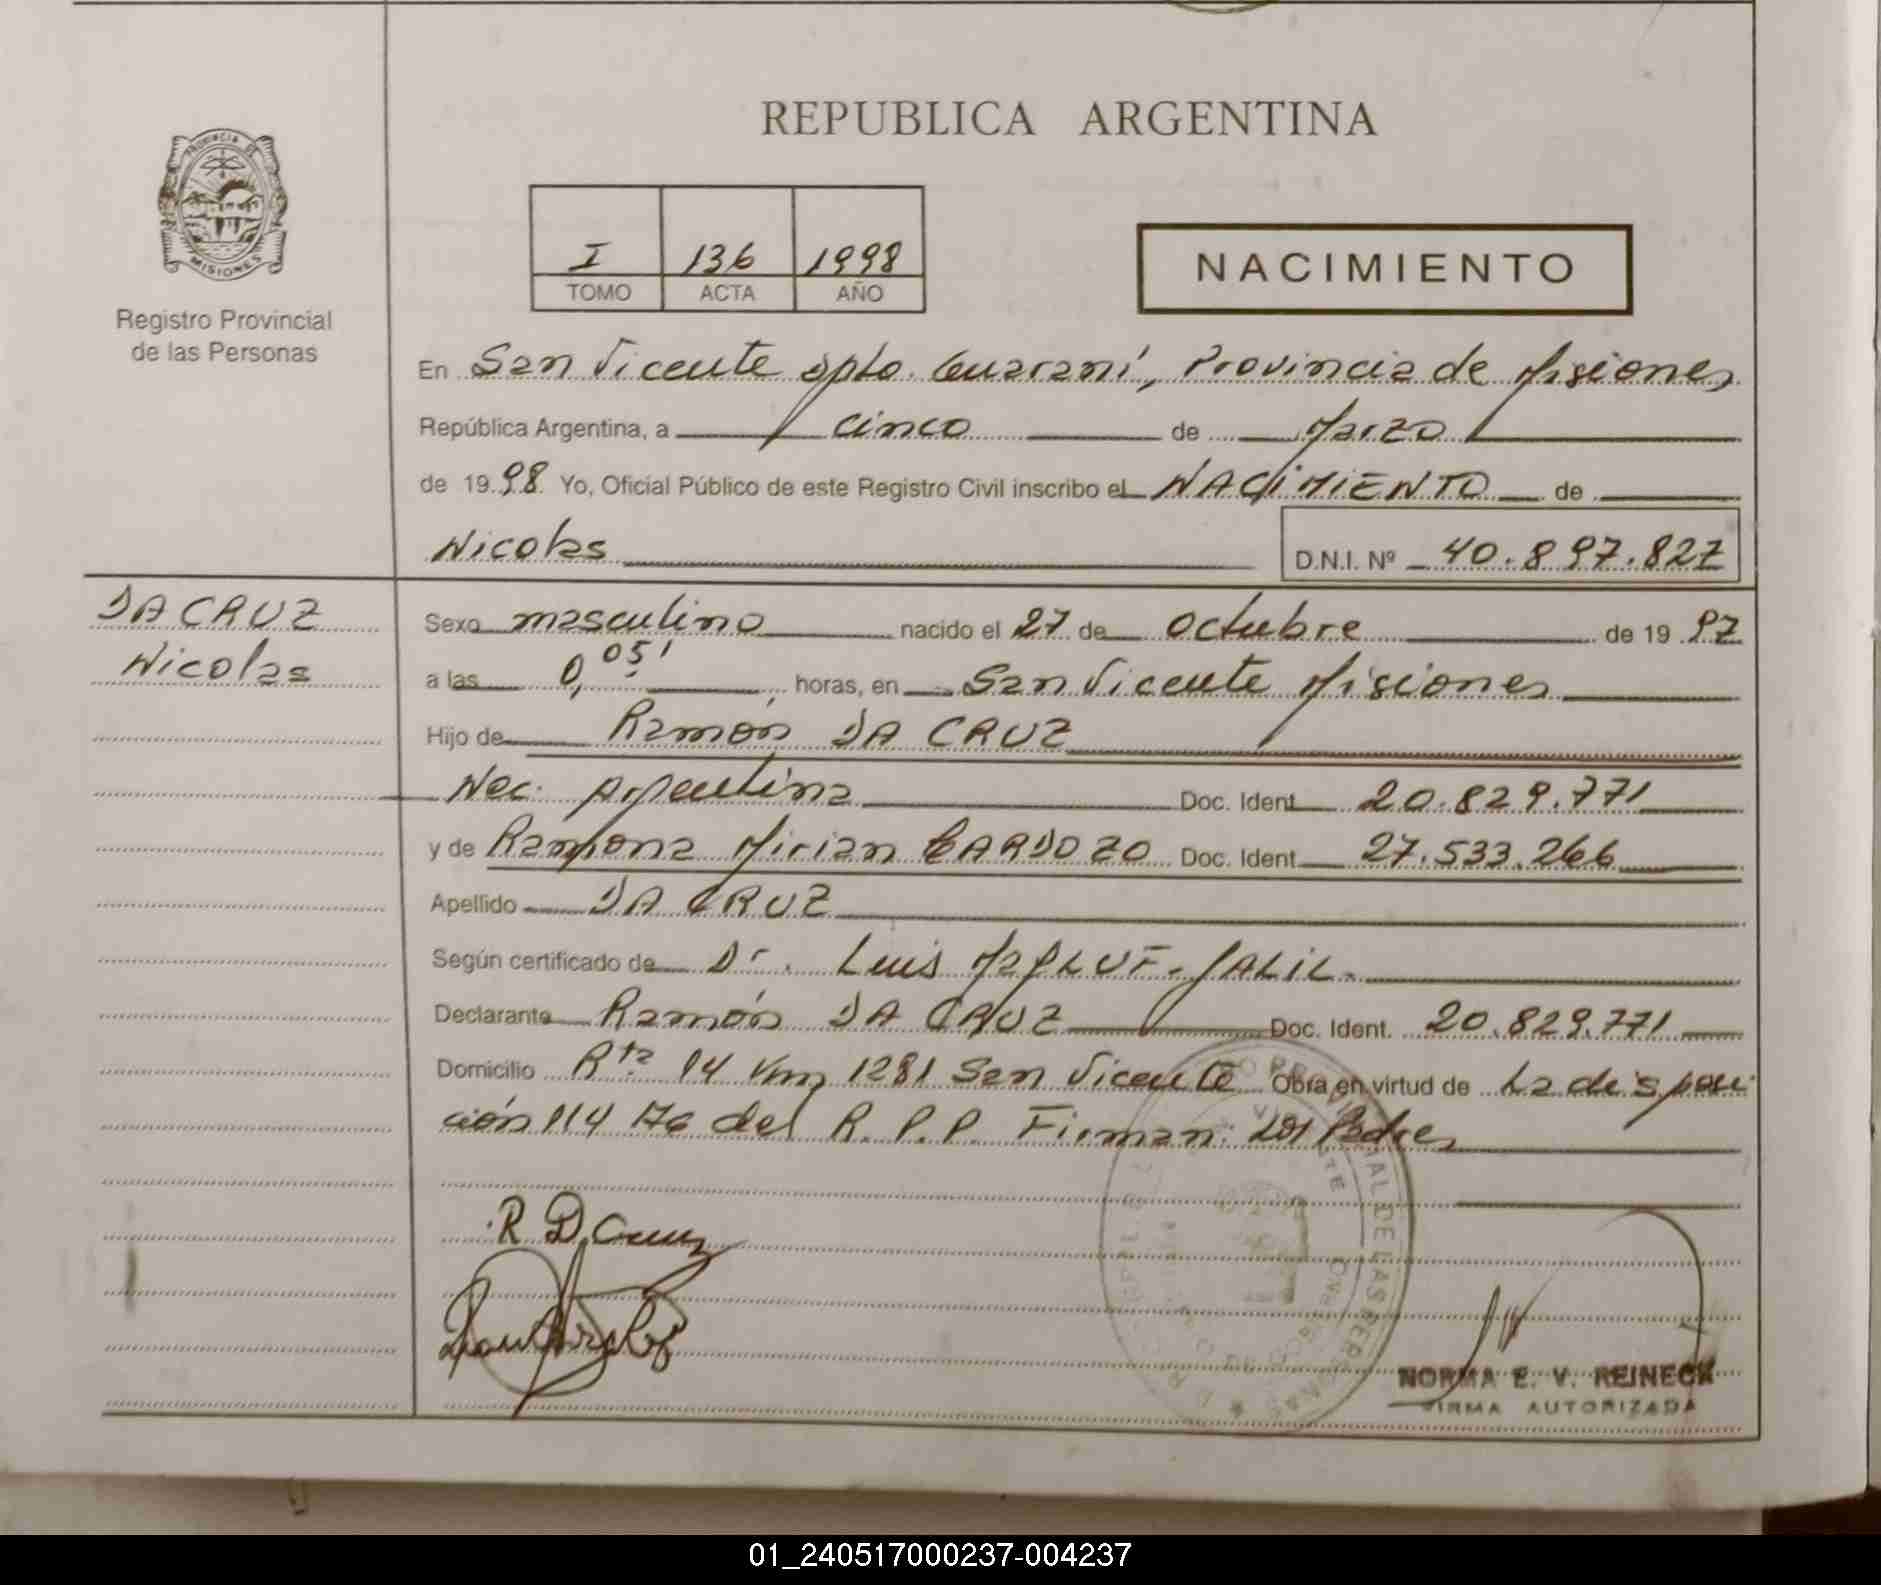 REPUBLICA ARGENTINA
PROVINCIA DE MISIONES
Registro Provincial
de las Personas
I 136 1998
TOMO ACTA AÑO
NACIMIENTO
En San Vicente Dpto. Guaraní, Provincia de Misiones
República Argentina, a cinco de Marzo
de 1998 Yo, Oficial Público de este Registro Civil inscribo el NACIMIENTO de
Nicolas D.N.I. Nº 40.897.827
DA CRUZ
Nicolas
Sexo masculino nacido el 27 de Octubre de 1997
a las 0,05' horas, en San Vicente Misiones
Hijo de Ramón DA CRUZ
Nac. Argentina Doc. Ident 20.829.771
y de Ramona Mirian CARDOZO Doc. Ident 27.533.266
Apellido DA CRUZ
Según certificado de Dr. Luis JALIL.
Declarante Ramón DA CRUZ Doc. Ident. 20.829.771
Domicilio Rta 14 Km 1281 San Vicente Obra en virtud de La disposi
ción 114 76 del R. P. P. Firman: Los Padres
R D Cruz
NORMA E. V. REINECK
FIRMA AUTORIZADA
01_240517000237-004237